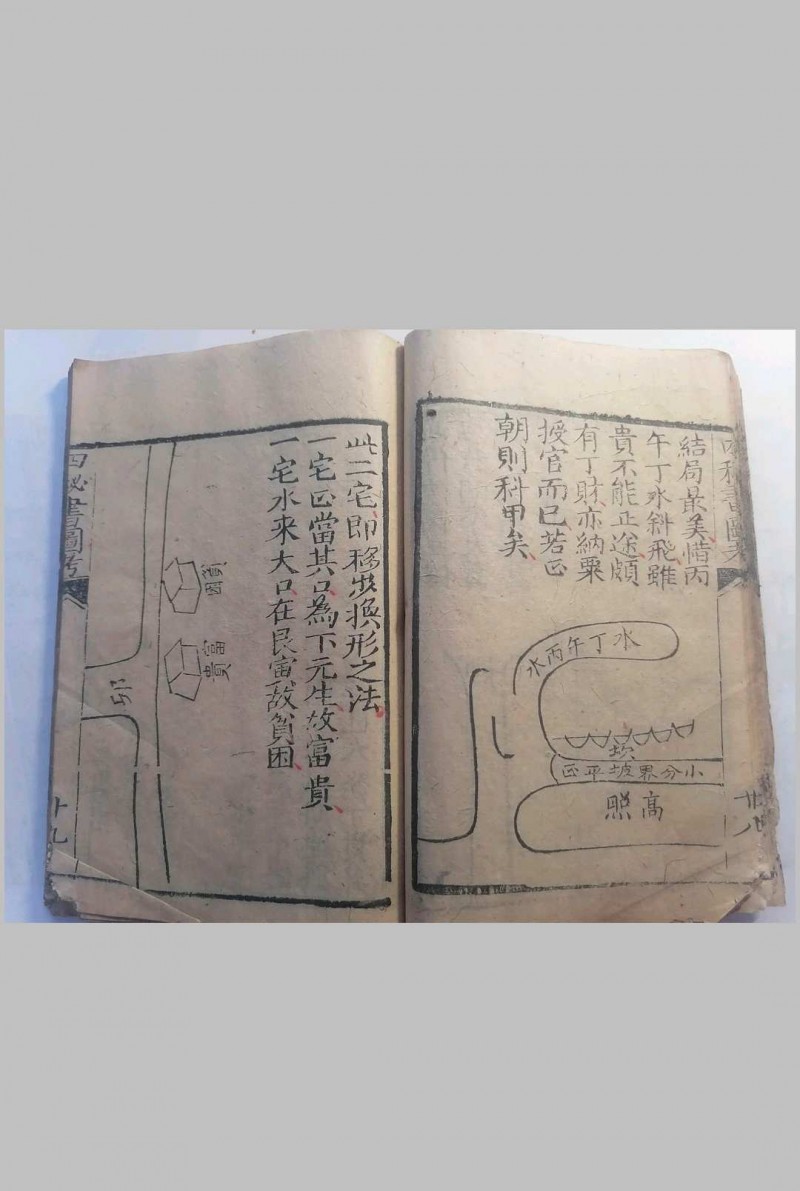 四秘書圖考
廿八
結局最美惜丙
午丁水斜飛雖
貴不能正途頗
有丁財亦納粟
授官而已若正
朝則科甲矣
水丁午丙水
坎
小分界坡平正
高照
此二宅即移步換形之法
一宅正當其口為下元生故富貴
一宅水来大口在艮寅故貧困
貧困
富貴
卯
四秘書圖考
廿九